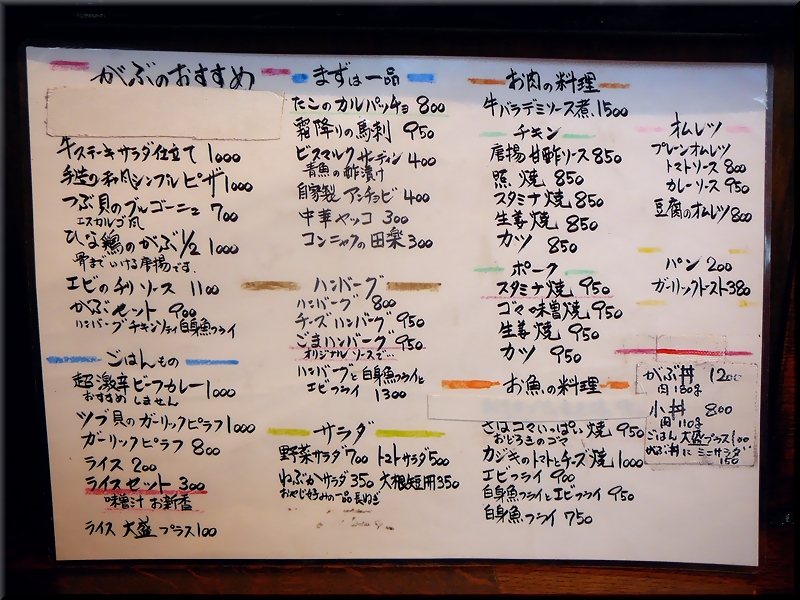 がぶのおすすめ
牛ステーキサラダ仕立て 1000
手造り和風シンプルピザ 1000
つぶ貝のブルゴーニュ 700
エスカルゴ風
ひな鶏のがぶ1/2 1000
骨までいける唐揚です。
エビのチリソース 1100
がぶセット 900
ハンバーグチキンソティ白身魚フライ
ごはんもの
超激辛ビーフカレー 1000
おすすめしません
ツブ貝のガーリックピラフ 1000
ガーリックピラフ 800
ライス 200
ライスセット 300
味噌汁 お新香
ライス 大盛プラス100
まずは一品
たこのカルパッチョ 800
霜降りの馬刺 950
ビスマルクサーディン 400
青魚の酢漬け
自家製アンチョビ 400
中華ヤッコ 300
コンニャクの田楽 300
ハンバーグ
ハンバーグ 800
チーズハンバーグ 950
ごまハンバーグ 950
オリジナルソースで…
ハンバーグと白身魚フライと
エビフライ 1300
サラダ
野菜サラダ 700 トマトサラダ 500
ねぶかサラダ 350 大根短冊 350
おやじ好みの一品 長ねぎ
お肉の料理
牛バラデミソース煮 1500
チキン
唐揚甘酢ソース 850
照焼 850
スタミナ焼 850
生姜焼 850
カツ 850
ポーク
スタミナ焼 950
ゴマ味噌焼 950
生姜焼 950
カツ 950
お魚の料理
さばゴマいっぱい焼 950
おどろきのゴマ
カジキのトマトとチーズ焼 1000
エビフライ 900
白身魚フライとエビフライ 950
白身魚フライ 750
オムレツ
プレーンオムレツ
トマトソース 800
カレーソース 950
豆腐のオムレツ 800
パン 200
ガーリックトースト 380
がぶ丼 1200
肉180g
小丼 800
肉110g
ごはん大盛プラス100
がぶ丼に ミニサラダ
150